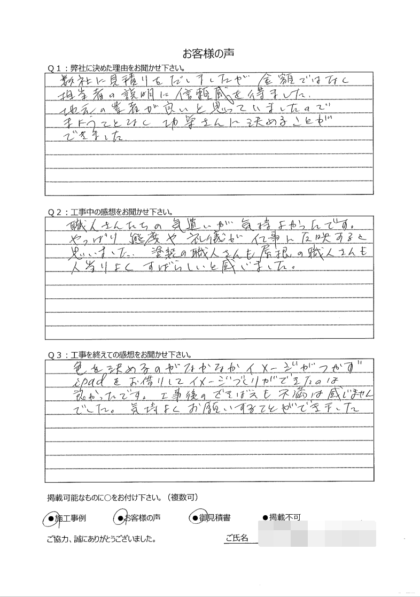 お客様の声
Q1：弊社に決めた理由をお聞かせ下さい。
数社に見積りをだしましたが 金額ではなく
担当者の説明に信頼感を得ました。
地元の業者が良いと思っていましたので
まようことなく さんに決めることが
できました
Q2：工事中の感想をお聞かせ下さい。
職人さんたちの気遣いが気持よかったです。
やっぱり 態度や礼儀が仕事に反映すると
思いました。塗装の職人さんも屋根の職人さんも
人当りよく すばらしいと感じました。
Q3：工事を終えての感想をお聞かせ下さい。
色を決めるのがなかなかイメージがつかず
ipadをお借りしてイメージづくりができたのは
良かったです。工事後のできばえも不満は感じません
でした。気持よくお願いすることができました
掲載可能なものに○をお付け下さい。（複数可）
●施工事例 ●お客様の声 ●御見積書 ●掲載不可
ご協力、誠にありがとうございました。 ご氏名